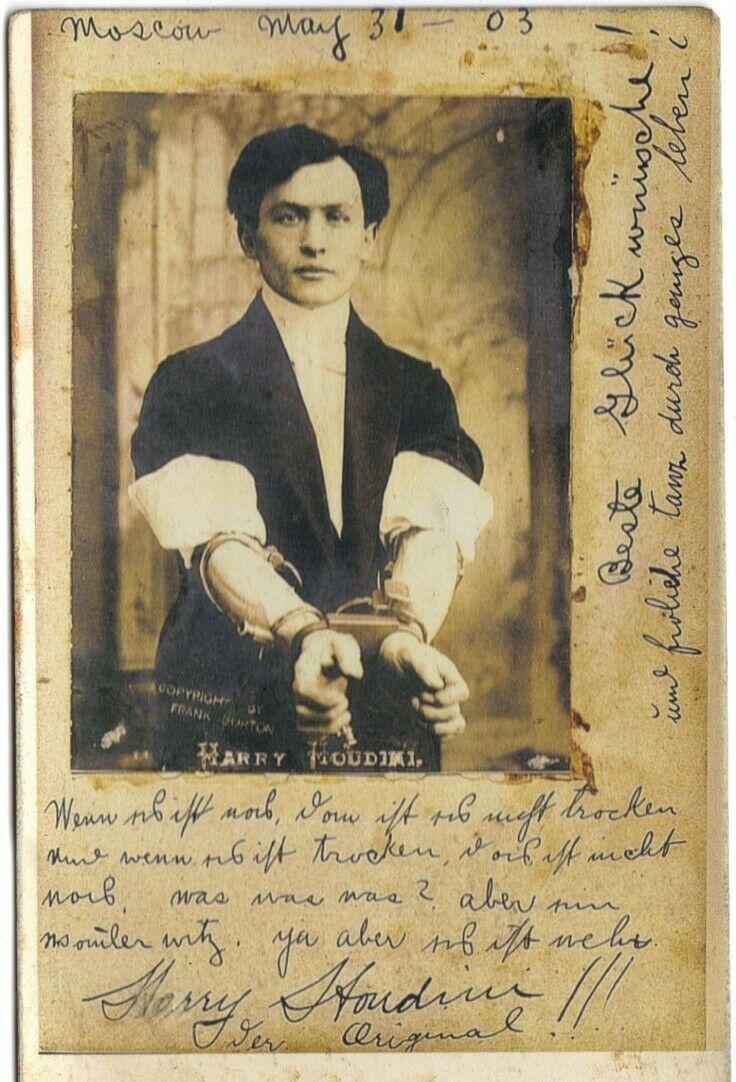 Moscow May 31 — 03
Beste Glück wünsche!
und froliche tanz durch ganzes leben!
COPYRIGHT BY
FRANK BURTON
HARRY HOUDINI.
Wenn es ist nass, dan ist es nicht trocken
und wenn es ist trocken, dass ist nicht
nass. was was was? aber ein
witz. ya aber es ist wahr.
Harry Houdini!!!
Der Original!